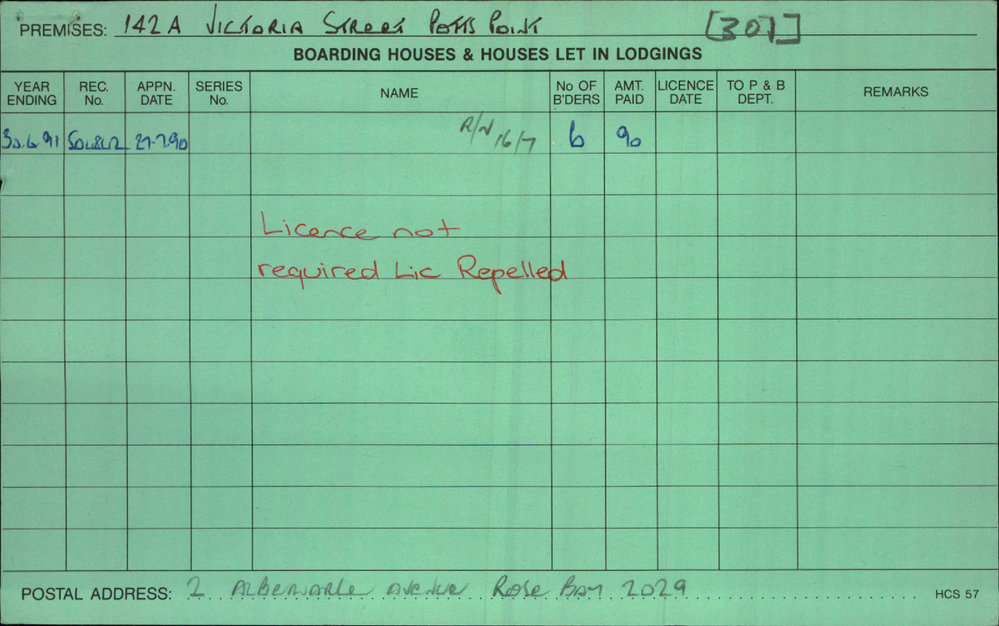 PREMISES: 142A VICTORIA STREET POTTS POINT [307]
BOARDING HOUSES & HOUSES LET IN LODGINGS
YEAR ENDING REC. No. APPN. DATE SERIES No. NAME No OF B'DERS AMT. PAID LICENCE DATE TO P & B DEPT. REMARKS
30.6.91 27.7.90 R/N 16/7 6 90
Licence not
required Lic Repelled
POSTAL ADDRESS: 2 ALBEMARLE AVENUE ROSE BAY 2029 HCS 57